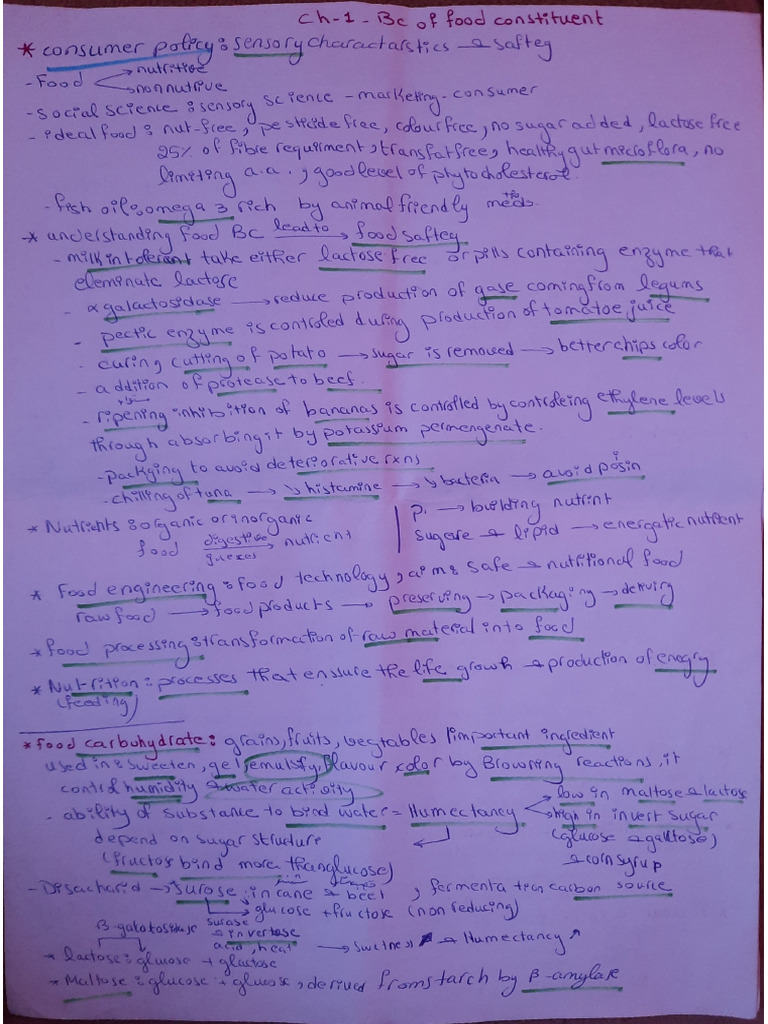 Ch-1 - Bc of food constituent
* consumer policy: sensory charactarstics & safteg
- Food < nutritive
nonnutrive
- social science: sensory science - marketing - consumer
- ideal food: nut-free, pesticide free, colour free, no sugar added, lactose free
25% of fible requirment, transfat free, healthy gut microflora, no
limiting a.a., good level of phytocholesterol.
- fish oil: omega 3 rich by animal friendly
* understanding food BC lead to → food safteg
- milk intolerant take either lactose free or pills containing enzyme that
eleminate lactose
- α galactosidase → reduce production of gase coming from legums
- pectic enzyme is controled during production of tomatoe juice
- curing cutting of potato → sugar is removed → better chips color
- addition of protease to beef.
- ripening inhibition of bananas is controlled by controleing ethylene levels
through absorbing it by potassium permengenate.
- packging to avoid deteriorative rxns
- chilling of tuna → ↓ histamine → ↓ bacteria → avoid posin
* Nutrients: organic or inorganic
food digestive → nutrient
P. → building nutrint
Sugere & lipid → energatic nutrient
* Food engineering: food technology, aim: safe & nutritional food
raw food → food products → preserving → packaging → delivirg
* food processing: transformation of raw material into food
* Nutrition: processes that enssure the life growth & production of enegry
(feeding)
* food carbohydrate: grains, fruits, vegtables / important ingredient
used in: sweeten, gel, emulsify, flavour color by Browning reactions, it
control humidity & water activity
- ability of substance to bind water = Humectancy < low in maltose & lactose
high in invert sugar
depend on sugar structure
(glucose & galktose)
(fructos bind more than glucose)
& corn syrup
- Disacharid → surose: in cane & beet, fermentation carbon source
→ glucose + fructose (non reducing)
β-galaktosidase surase & invertase
acid, heat → swetness & Humectancy ↗
* lactose: glucose + glactose
* Maltose: glucose + glucose, derived from starch by β-amylase